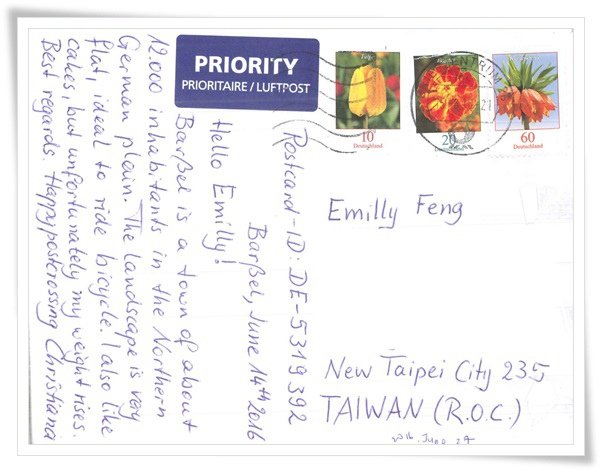 PRIORITY
PRIORITAIRE / LUFTPOST
10
Deutschland
20
60
Deutschland
ZENTRUM
Postcard-ID: DE-5319392
Barßel, June 14th 2016
Hello Emilly!
Barßel is a town of about
12.000 inhabitants in the Northern
German plain. The landscape is very
flat, ideal to ride bicycle. I also like
cakes, but unfortunately my weight rises.
Best regards Happypostcrossing Christiana
Emilly Feng
New Taipei City 235
TAIWAN (R.O.C.)
2016. June 27